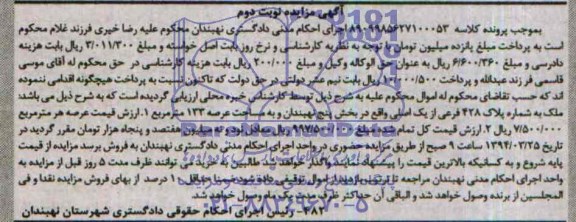 آگهی مزایده نوبت دوم
بموجب پرونده کلاسه اجرای احکام مدنی دادگستری نهبندان محکوم علیه رضا خیری فرزند غلام محکوم
است به پرداخت مبلغ پانزده میلیون تومان با توجه به نظریه کارشناسی و نرخ روز بابت اصل خواسته و مبلغ ۳/۰۱۱/۳۰۰ ریال بابت هزینه
دادرسی و مبلغ ۶/۶۰۰/۳۶۰ ریال به عنوان حق الوکاله وکیل و مبلغ ریال بابت هزینه کارشناسی در حق محکوم له آقای موسی
قاسمی فرزند عبدالله و پرداخت ریال بابت نیم عشر دولتی در حق دولت که تاکنون نسبت به پرداخت هیچگونه اقدامی ننموده
اند که حسب تقاضای محکوم له اموال محکوم علیه به شرح ذیل توسط کارشناس خبره محلی ارزیابی گردیده است که به شرح ذیل می باشد
ملک به شماره پلاک ۴۲۸ فرعی از یک اصلی واقع در بخش پنج نهبندان و به مساحت عرصه ۱۳۳ مترمربع ۱.ارزش قیمت عرصه هر مترمربع
۷/۵۰۰/۰۰۰ ریال ۲.ارزش قیمت کل تمام شده مبلغ ریال معادل نود و نه میلیون هفتصد و پنجاه هزار تومان مقرر گردید در
تاریخ ۱۳۹۴/۰۲/۲۵ ساعت ۹ صبح از طریق مزایده حضوری در واحد اجرای احکام مدنی دادگستری نهبندان به فروش برسد مزایده از قیمت
پایه شروع و به کسانیکه بالاترین قیمت را پیشنهاد نمایند واگذار خواهد شد طالبین به خرید می توانند ظرف مدت ۵ روز قبل از مزایده به
واحد اجرای احکام مدنی نهبندان مراجعه تا ترتیب بازدید از اموال توقیفی داده شود ضمنا حداقل ۱۰ درصد از بهای فروش مزایده نقدا و فی
المجلس از برنده وصول خواهد شد و الباقی آن حداکثر ظرف مدت یک ماه وصول خواهد شد.
۳۸۲- رئیس اجرای احکام حقوقی دادگستری شهرستان نهبندان